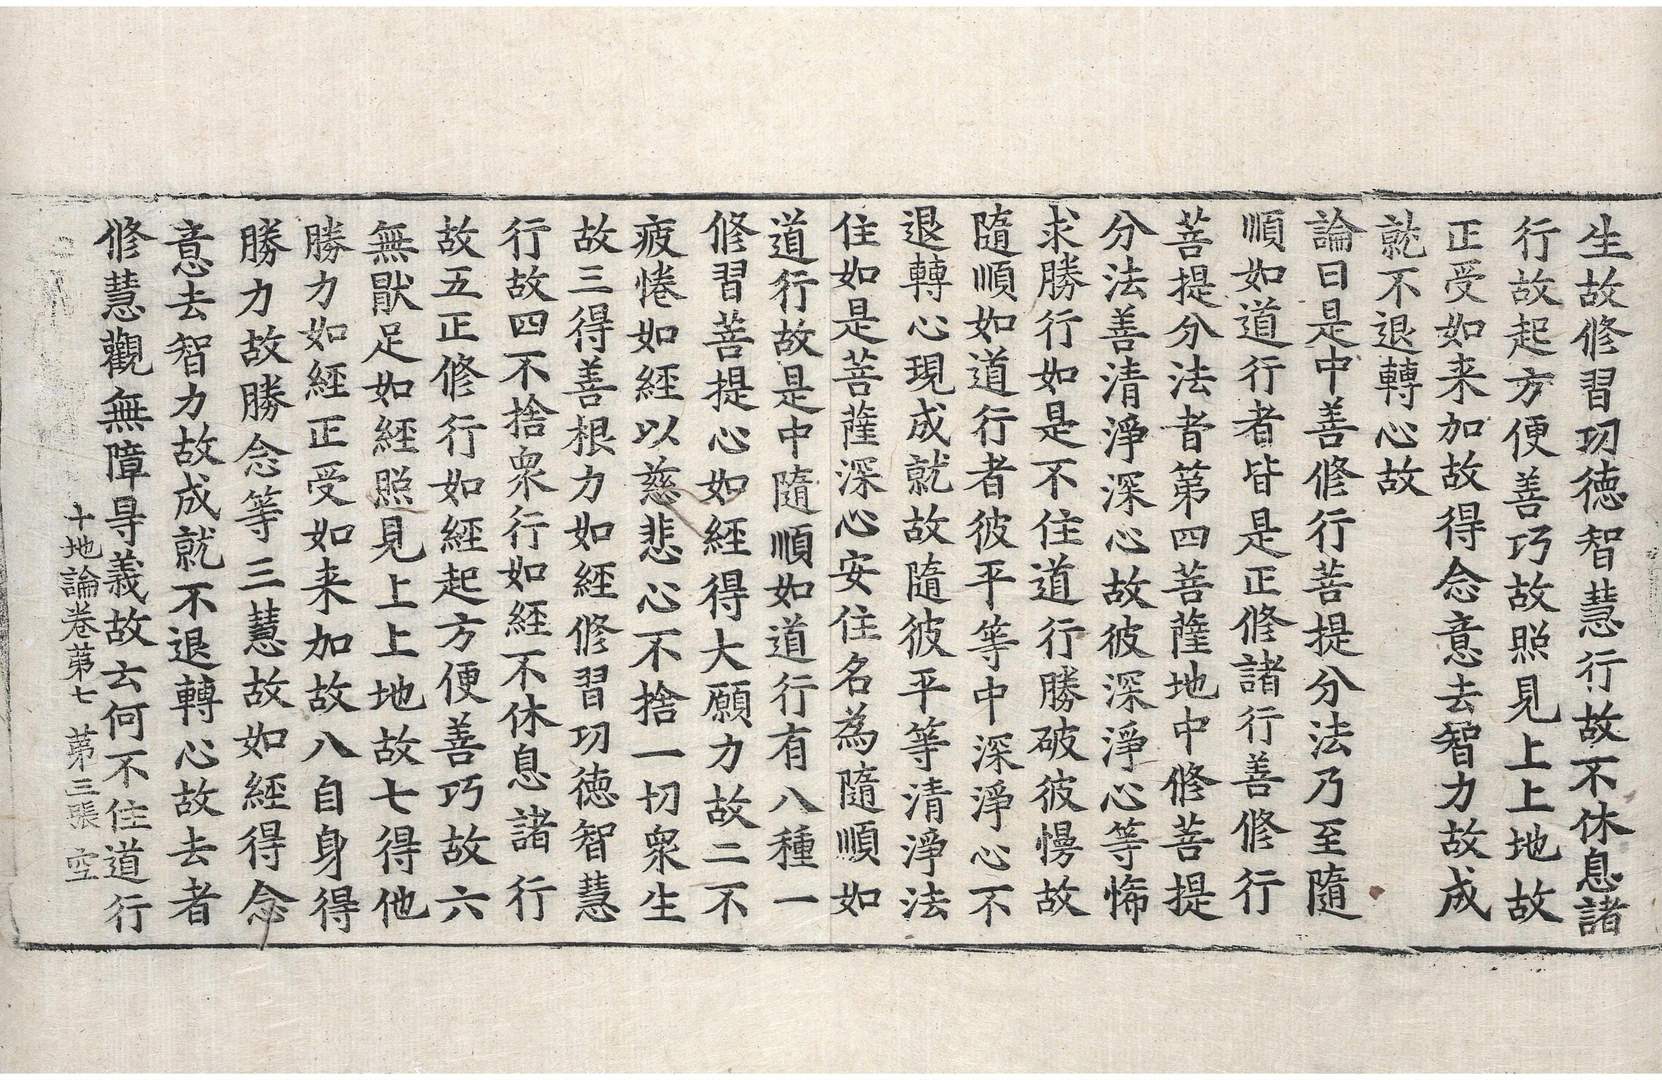 生故修習功德智慧行故不休息諸
行故起方便善巧故照見上上地故
正受如来加故得念意去智力故成
就不退轉心故
論曰是中善修行菩提分法乃至隨
順如道行者皆是正修諸行善修行
菩提分法者第四菩薩地中修菩提
分法善清淨深心故彼深淨心等悕
求勝行如是不住道行勝破彼慢故
隨順如道行者彼平等中深淨心不
退轉心現成就故隨彼平等清淨法
住如是菩薩深心安住名為隨順如
道行故是中隨順如道行有八種一
修習菩提心如經得大願力故二不
疲惓如經以慈悲心不捨一切衆生
故三得善根力如經修習功德智慧
行故四不捨衆行如經不休息諸行
故五正修行如經起方便善巧故六
無猒足如經照見上上地故七得他
勝力如經正受如来加故八自身得
勝力故勝念等三慧故如經得念
意去智力故成就不退轉心故去者
修慧觀無障㝵義故云何不住道行
十地論卷第七 第三張 空